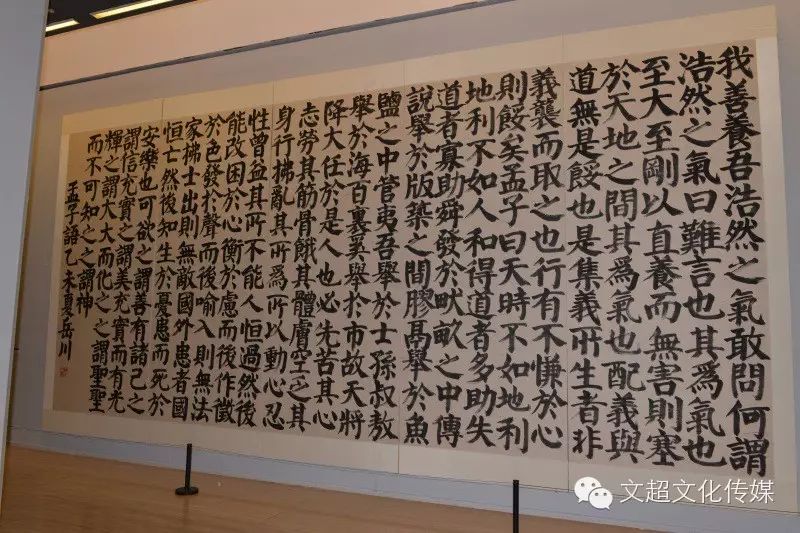 我善養吾浩然之氣敢問何謂
浩然之氣曰難言也其爲氣也
至大至剛以直養而無害則塞
於天地之間其爲氣也配義與
道無是餒也是集義所生者非
義襲而取之也行有不慊於心
則餒矣孟子曰天時不如地利
地利不如人和得道者多助失
道者寡助舜發於畎畝之中傳
說舉於版築之間膠鬲舉於魚
鹽之中管夷吾舉於士孫叔敖
舉於海百裏奚舉於市故天將
降大任於是人也必先苦其心
志勞其筋骨餓其體膚空乏其
身行拂亂其所爲所以動心忍
性曾益其所不能人恒過然後
能改困於心衡於慮而後作徵
於色發於聲而後喻入則無法
家拂士出則無敵國外患者國
恒亡然後知生於憂患而死於
安樂也可欲之謂善有諸己之
謂信充實之謂美充實而有光
輝之謂大大而化之之謂聖聖
而不可知之之謂神
孟子語乙未夏岳川
文超文化传媒